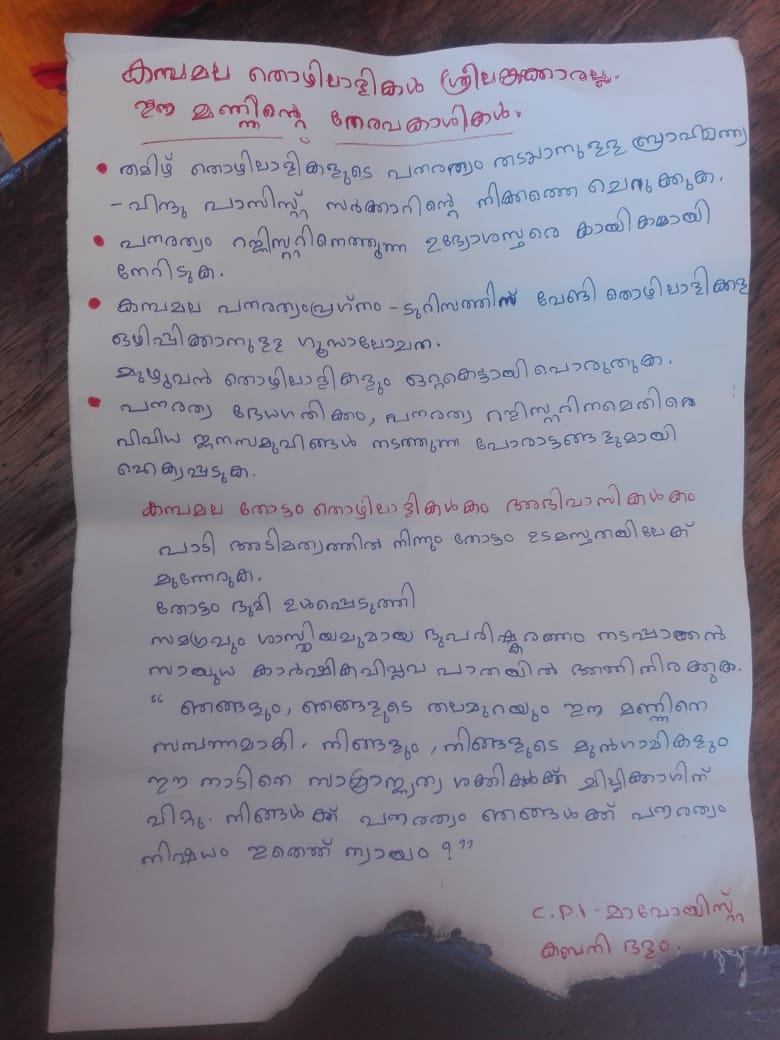 കമ്പമല തൊഴിലാളികൾ ശ്രീലങ്കക്കാരല്ല.
ഈ മണ്ണിൻ്റെ നേരവകാശികൾ.
• തമിഴ് തൊഴിലാളികളുടെ പൗരത്വം തടയാനുള്ള ബ്രാഹ്മണ്യ
- ഹിന്ദു ഫാസിസ്റ്റ് സർക്കാറിൻ്റെ നീക്കത്തെ ചെറുക്കുക.
• പൗരത്വം റജിസ്റ്ററിനെത്തുന്ന ഉദ്യോഗസ്ഥരെ കായികമായി
നേരിടുക.
• കമ്പമല പൗരത്വപ്രശ്നം - ടൂറിസത്തിന് വേണ്ടി തൊഴിലാളികളെ
ഒഴിപ്പിക്കാനുള്ള ഗൂഢാലോചന.
മുഴുവൻ തൊഴിലാളികളും ഒറ്റക്കെട്ടായി പൊരുതുക.
• പൗരത്വ ഭേദഗതിക്കും, പൗരത്വ റജിസ്റ്ററിനുമെതിരെ
വിവിധ ജനസമൂഹങ്ങൾ നടത്തുന്ന പോരാട്ടങ്ങളുമായി
ഐക്യപ്പെടുക.
കമ്പമല തോട്ടം തൊഴിലാളികൾക്കും ആദിവാസികൾക്കും
പാടി അടിമത്വത്തിൽ നിന്നും തോട്ടം ഉടമസ്ഥതയിലേക്ക്
മുന്നേറുക.
തോട്ടം ഭൂമി ഉൾപ്പെടുത്തി
സമഗ്രവും ശാസ്ത്രീയവുമായ ഭൂപരിഷ്കരണം നടപ്പാക്കാൻ
സായുധ കാർഷിക വിപ്ലവ പാതയിൽ അണിനിരക്കുക.
“ ഞങ്ങളും, ഞങ്ങളുടെ തലമുറയും ഈ മണ്ണിനെ
സമ്പന്നമാക്കി. നിങ്ങളും, നിങ്ങളുടെ മുൻഗാമികളും
ഈ നാടിനെ സാമ്രാജ്യത്വ ശക്തികൾക്ക്
വിറ്റു. നിങ്ങൾക്ക് പൗരത്വം ഞങ്ങൾക്ക് പൗരത്വം
നിഷേധം ഇതെന്ത് ന്യായം ?”
C.P.I - മാവോയിസ്റ്റ്
കബനി ദളം.